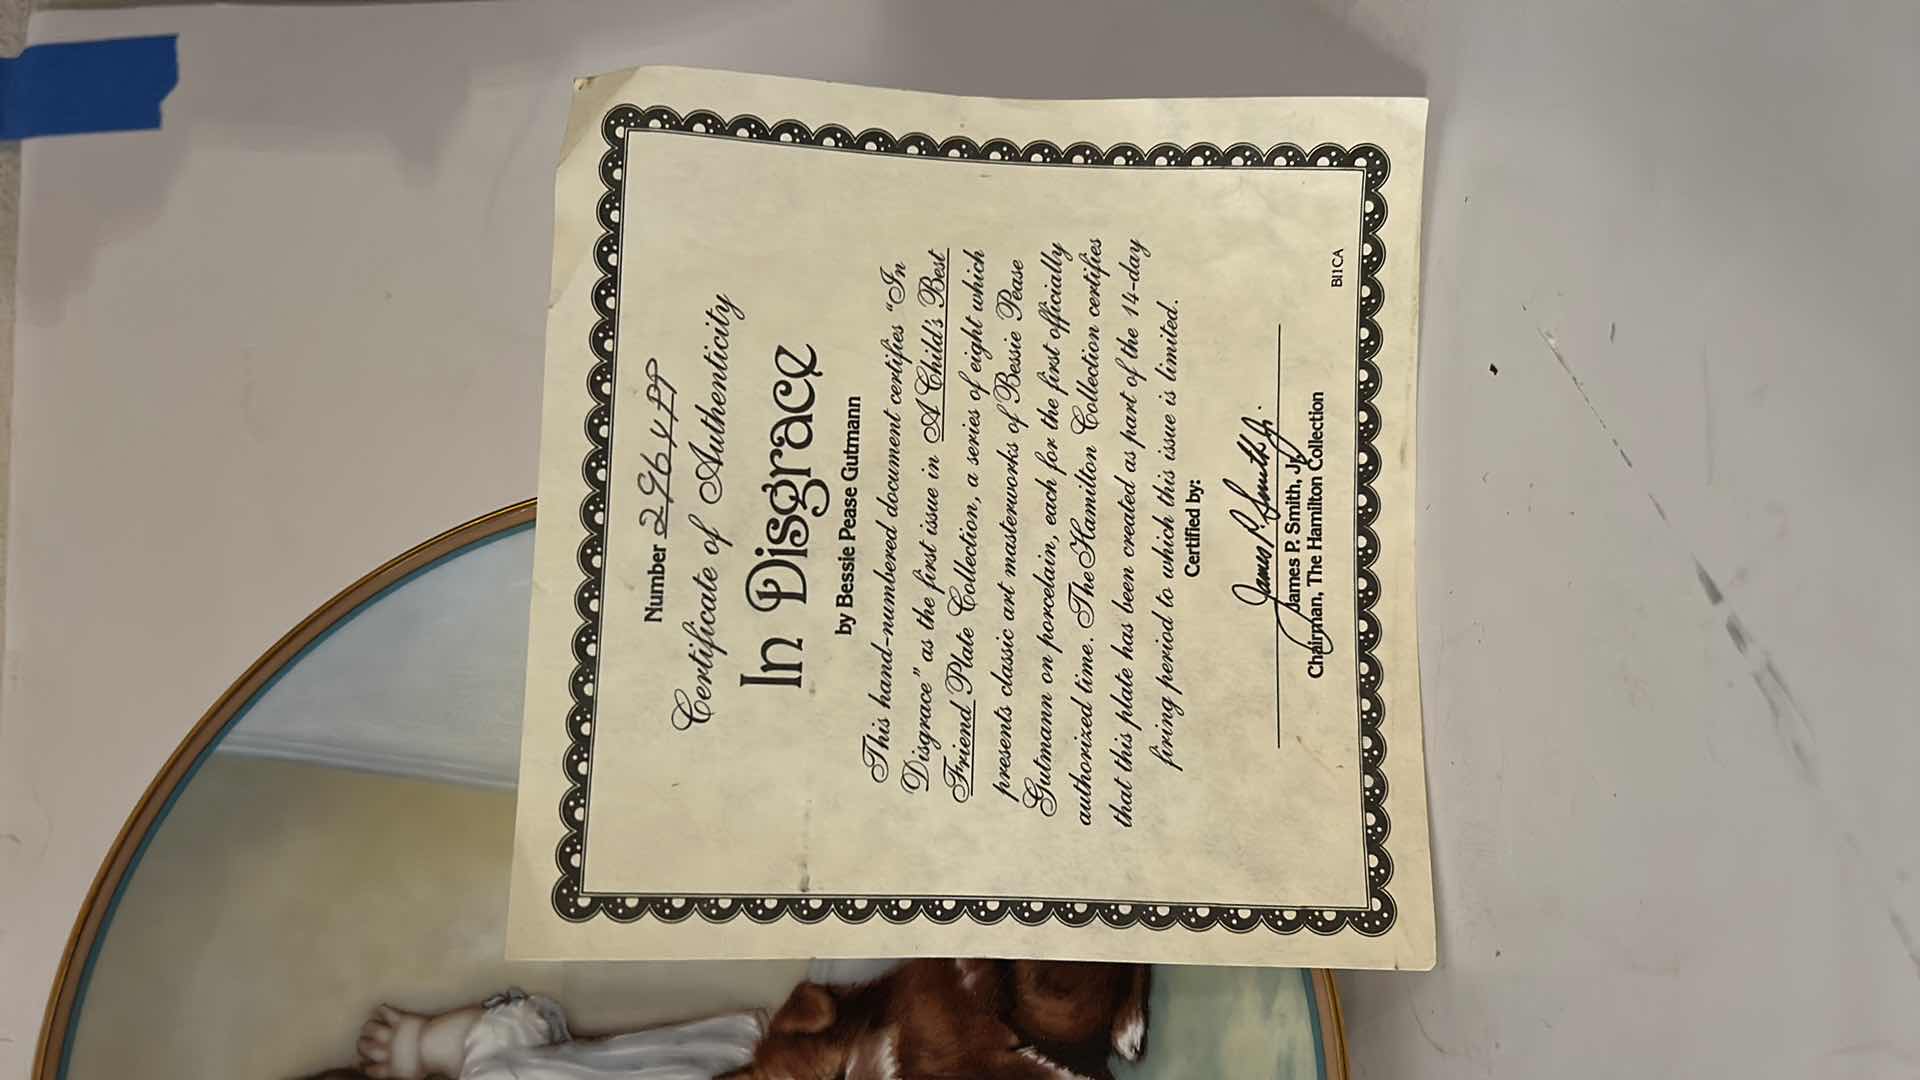 Number 2964PP
Certificate of Authenticity
In Disgrace
by Bessie Pease Gutmann
This hand-numbered document certifies "In
Disgrace" as the first issue in A Child's Best
Friend Plate Collection, a series of eight which
presents classic art masterworks of Bessie Pease
Gutmann on porcelain, each for the first officially
authorized time. The Hamilton Collection certifies
that this plate has been created as part of the 14-day
firing period to which this issue is limited.
Certified by:
James P. Smith Jr.
James P. Smith, Jr.
Chairman, The Hamilton Collection
BI1CA